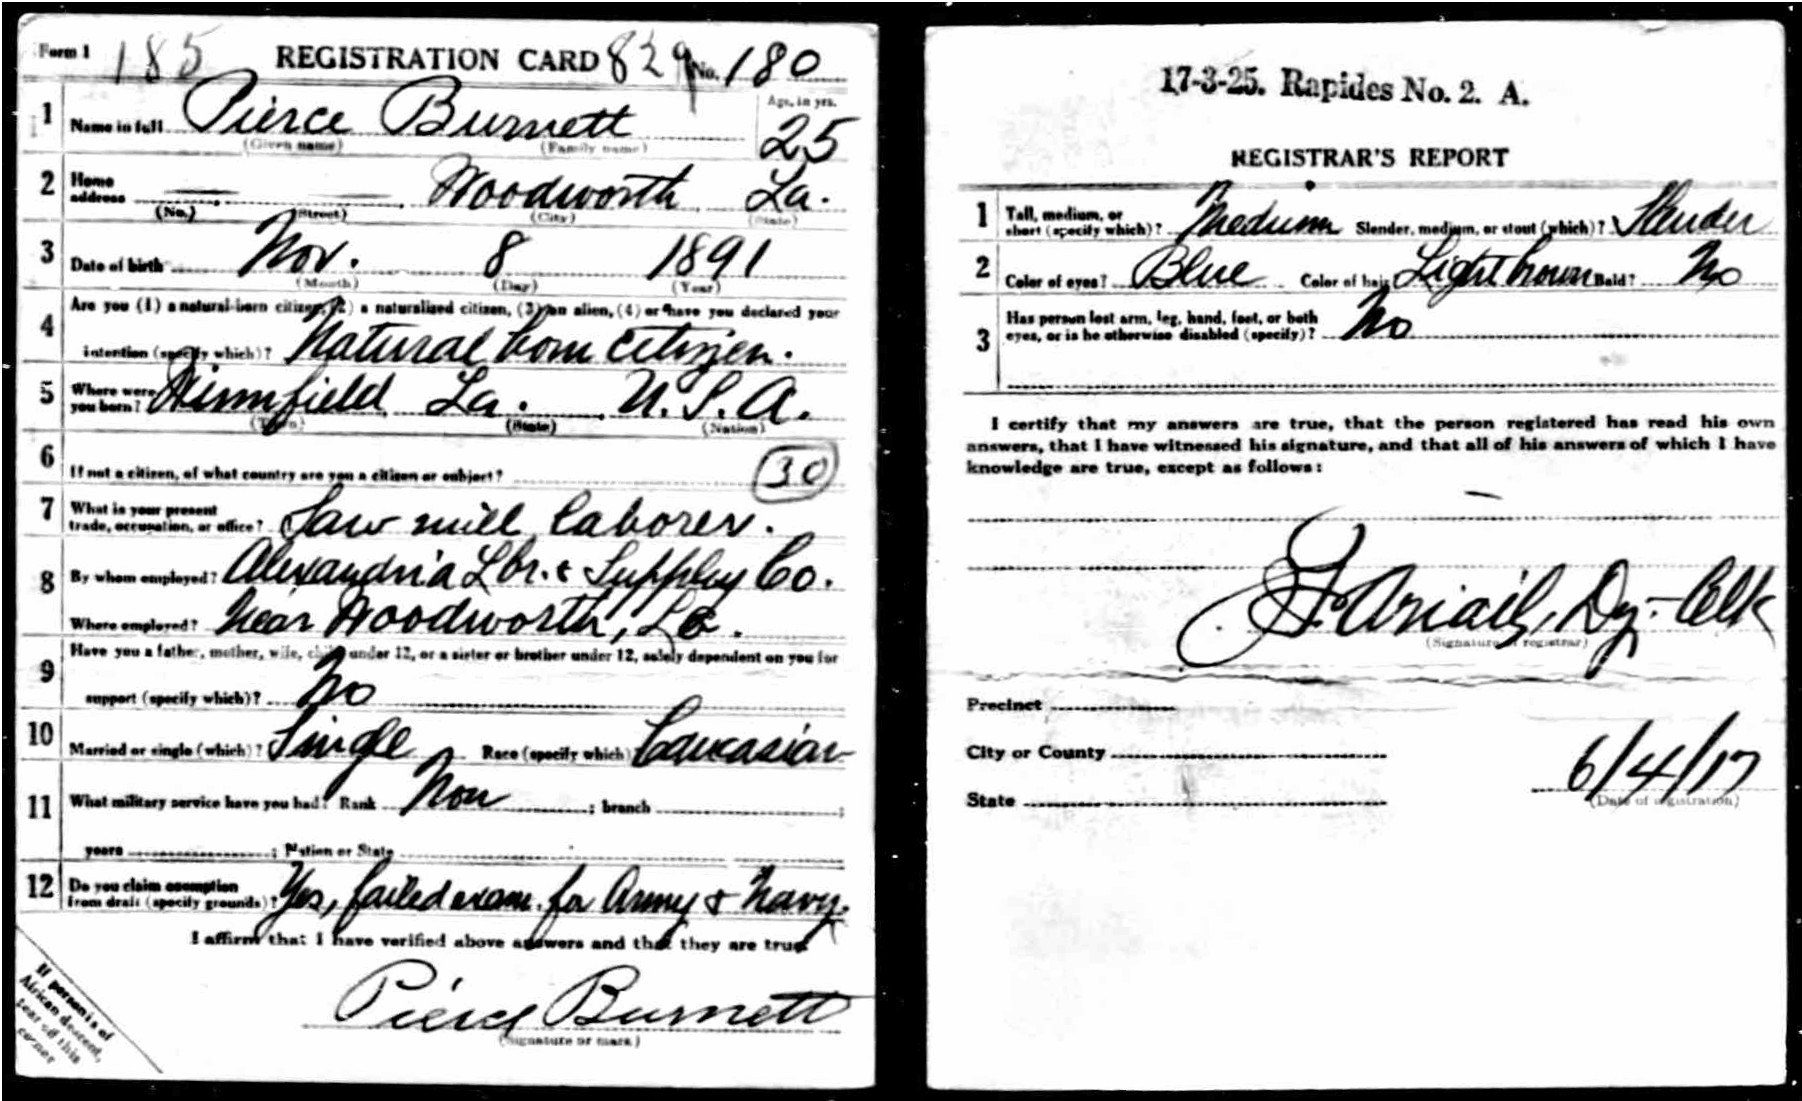 Form 1 185 REGISTRATION CARD 829 No. 180
1 Name in full Pierce Burnett Age, in yrs. 25
(Given name) (Family name)
2 Home address Woodworth La.
(No.) (Street) (City) (State)
3 Date of birth Nov. 8 1891
(Month) (Day) (Year)
4 Are you (1) a natural-born citizen, (2) a naturalized citizen, (3) an alien, (4) or have you declared your
intention (specify which)? Natural born citizen.
5 Where were you born? Winnfield La. U.S.A.
(Town) (State) (Nation)
6 If not a citizen, of what country are you a citizen or subject? 30
7 What is your present trade, occupation, or office? Saw mill laborer.
8 By whom employed? Alexandria Lbr. & Suppley Co.
Where employed? Near Woodworth, La.
9 Have you a father, mother, wife, child under 12, or a sister or brother under 12, solely dependent on you for
support (specify which)? No
10 Married or single (which)? Single Race (specify which)? Caucasian
11 What military service have you had? Rank Non ; branch ;
years ; Nation or State
12 Do you claim exemption from draft (specify grounds)? Yes, failed exam. for Army & Navy.
I affirm that I have verified above answers and that they are true
Pierce Burnett
(Signature or mark)
If person is of
African descent,
tear off this
corner
17-3-25. Rapides No. 2. A.
REGISTRAR'S REPORT
1 Tall, medium, or short (specify which)? Medium Slender, medium, or stout (which)? Slender
2 Color of eyes? Blue Color of hair? Light brown Bald? No
3 Has person lost arm, leg, hand, foot, or both
eyes, or is he otherwise disabled (specify)? No
I certify that my answers are true, that the person registered has read his own
answers, that I have witnessed his signature, and that all of his answers of which I have
knowledge are true, except as follows:
Ariail, Dy. Clk
(Signature of registrar)
Precinct
City or County
State
6/4/17
(Date of registration)